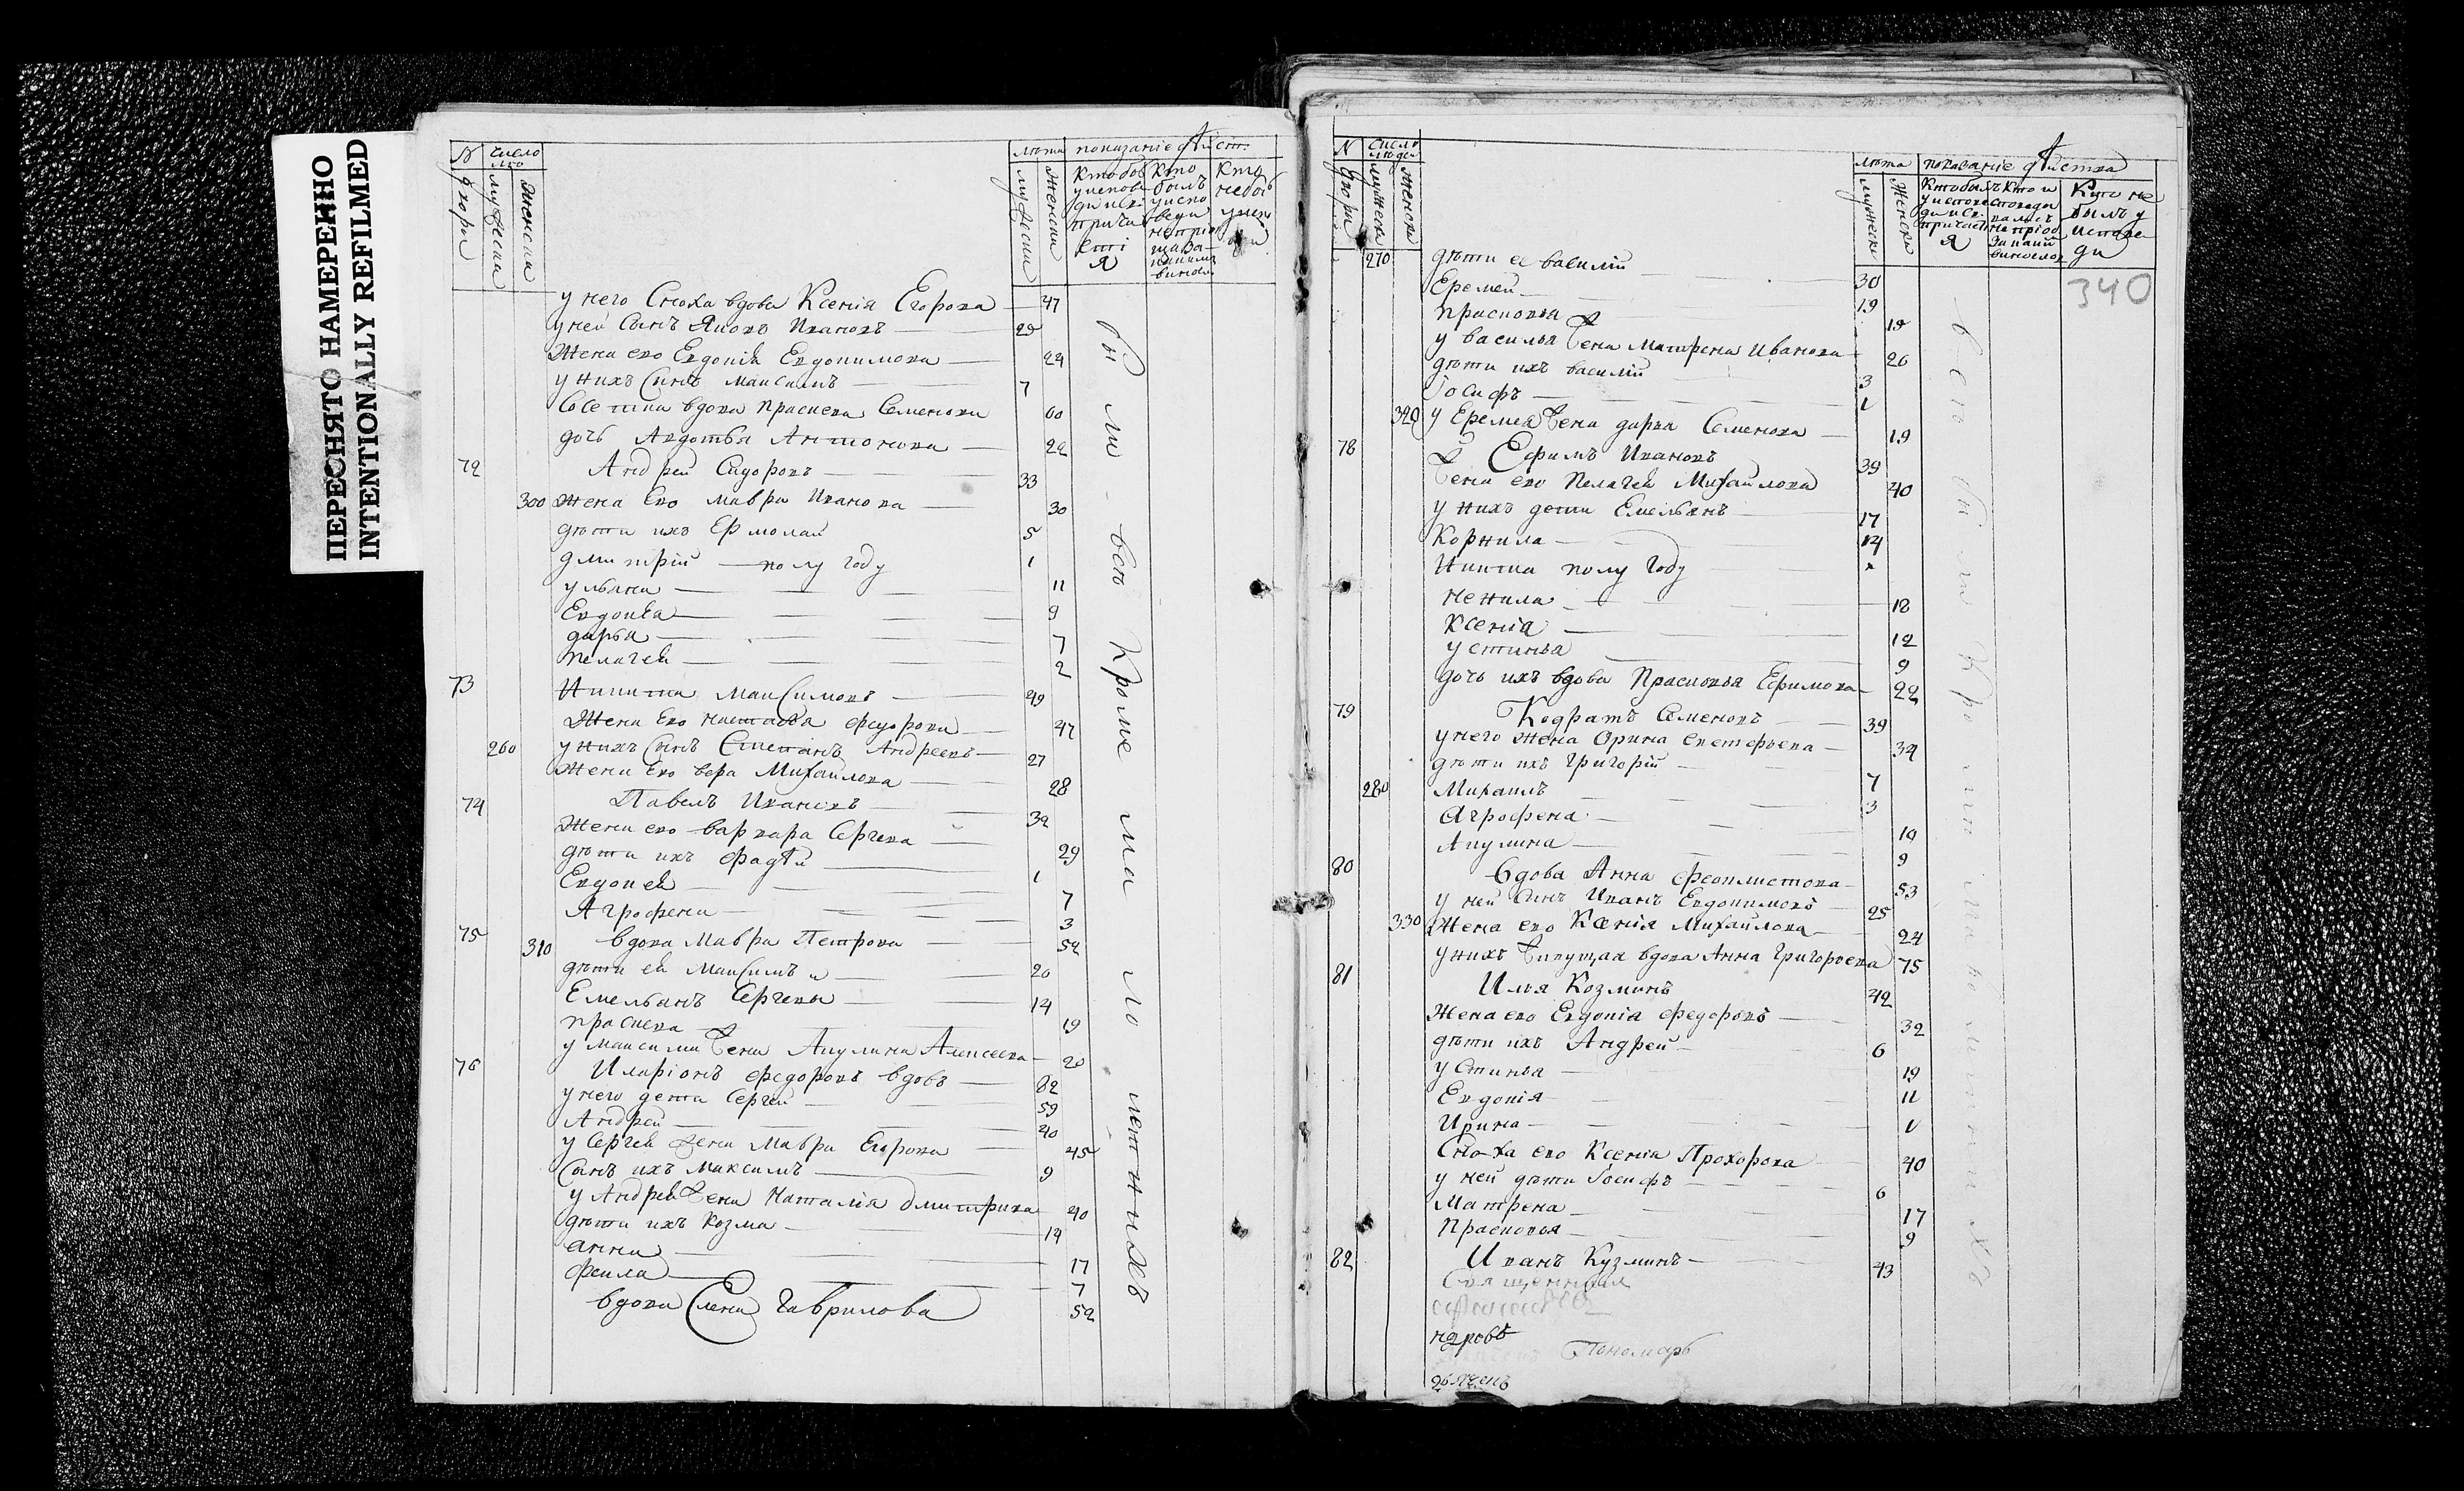 ПЕРЕСНЯТО НАМЕРЕННО
INTENTIONALLY REFILMED
N двори
число лю
мужеска
женска
лѣта
мужески
женски
показание дѣйст.
кто
кто
у него Сноха вдова Ксенія Егорова — 47
у ней Сынъ Яковъ Ивановъ — 25
Жена ево Евдокія Евдокимова — 24
у нихъ Сынъ Максимъ — 7
вдова Прасковa Семенова 60
дочь Авдотья Антонова — 22
72 Андрей Сидоровъ — 33
300 Жена Ево Мавра Иванова — 30
дѣти ихъ Ермолай 5
дмитрій — полу году 1
ульяна — 11
Евдокѣа — 9
дарья — 7
пелагея — 2
73 Никита Максимовъ — 49
Жена Ево настасья федорова — 47
260 у нихъ Сынъ Степанъ Андреевъ — 27
Жена Ево вера Михайлова — 28
74 Павелъ Ивановъ — 32
Жена ево варвара Сергева — 29
дѣти ихъ фадѣй — 1
Евдокея — 7
Агрофена — 3
75 310 вдова Мавра Петрова — 52
дѣти ея Максимъ и — 20
Емельянъ Сергевы — 14
праскева — 19
у Максима жена Акулина Алексеева — 20
76 Иларіонъ федоровъ вдовъ — 82
у него дети Сергей — 59
Андрей — 40
у Сергея жена Мавра Егорова — 45
Сынъ ихъ Максимъ — 9
у Андрея жена Наталія дмитрива 40
дѣти ихъ Козма — 14
анна — 17
фекла — 7
вдова Елена Гаврилова 52
были всѣ Кроме малолетнихъ
N двори
число людей
мужеска
женска
лѣта
мужески
женски
показаніе дѣйства
Кто не былъ у исповеди
340
270 дѣти ее василій — 30
Еремей — 19
прасковья — 19
у василья жена Матрена Иванова 26
дѣти ихъ василій — 3
Іосифъ — 1
320 у Еремея жена дарья Семенова — 19
78 Ефимъ Ивановъ 39
жена ево Пелагея Михайлова 40
у нихъ дети Емельянъ — 17
Корнила — 14
Никита полу году
ненила — 18
Ксенія — 12
устинья — 9
дочь ихъ вдова Прасковья Ефимова — 22
79 Кодратъ Семеновъ — 39
у него жена Орина — 34
дѣти ихъ Григорій — 7
280 Михаилъ — 3
Агрофена — 10
Акулина — 9
80 вдова Анна феоктистова — 53
у ней Сынъ Иванъ Евдокимовъ — 25
330 Жена ево Ксенія Михайлова — 24
у нихъ вдова Анна Григорьева 75
81 Илья Козминъ 42
Жена ево Евдокія федорова — 32
дѣти ихъ Андрей — 6
устинья — 19
Евдокія — 11
Ирина — 1
Сноха ево Ксенія Прохорова 40
у ней дѣти Іосифъ — 6
Матрена — 17
Прасковья — 9
82 Иванъ Кузминъ — 43
всѣ были Кроме малолетнихъ
Священникъ
Пономарь